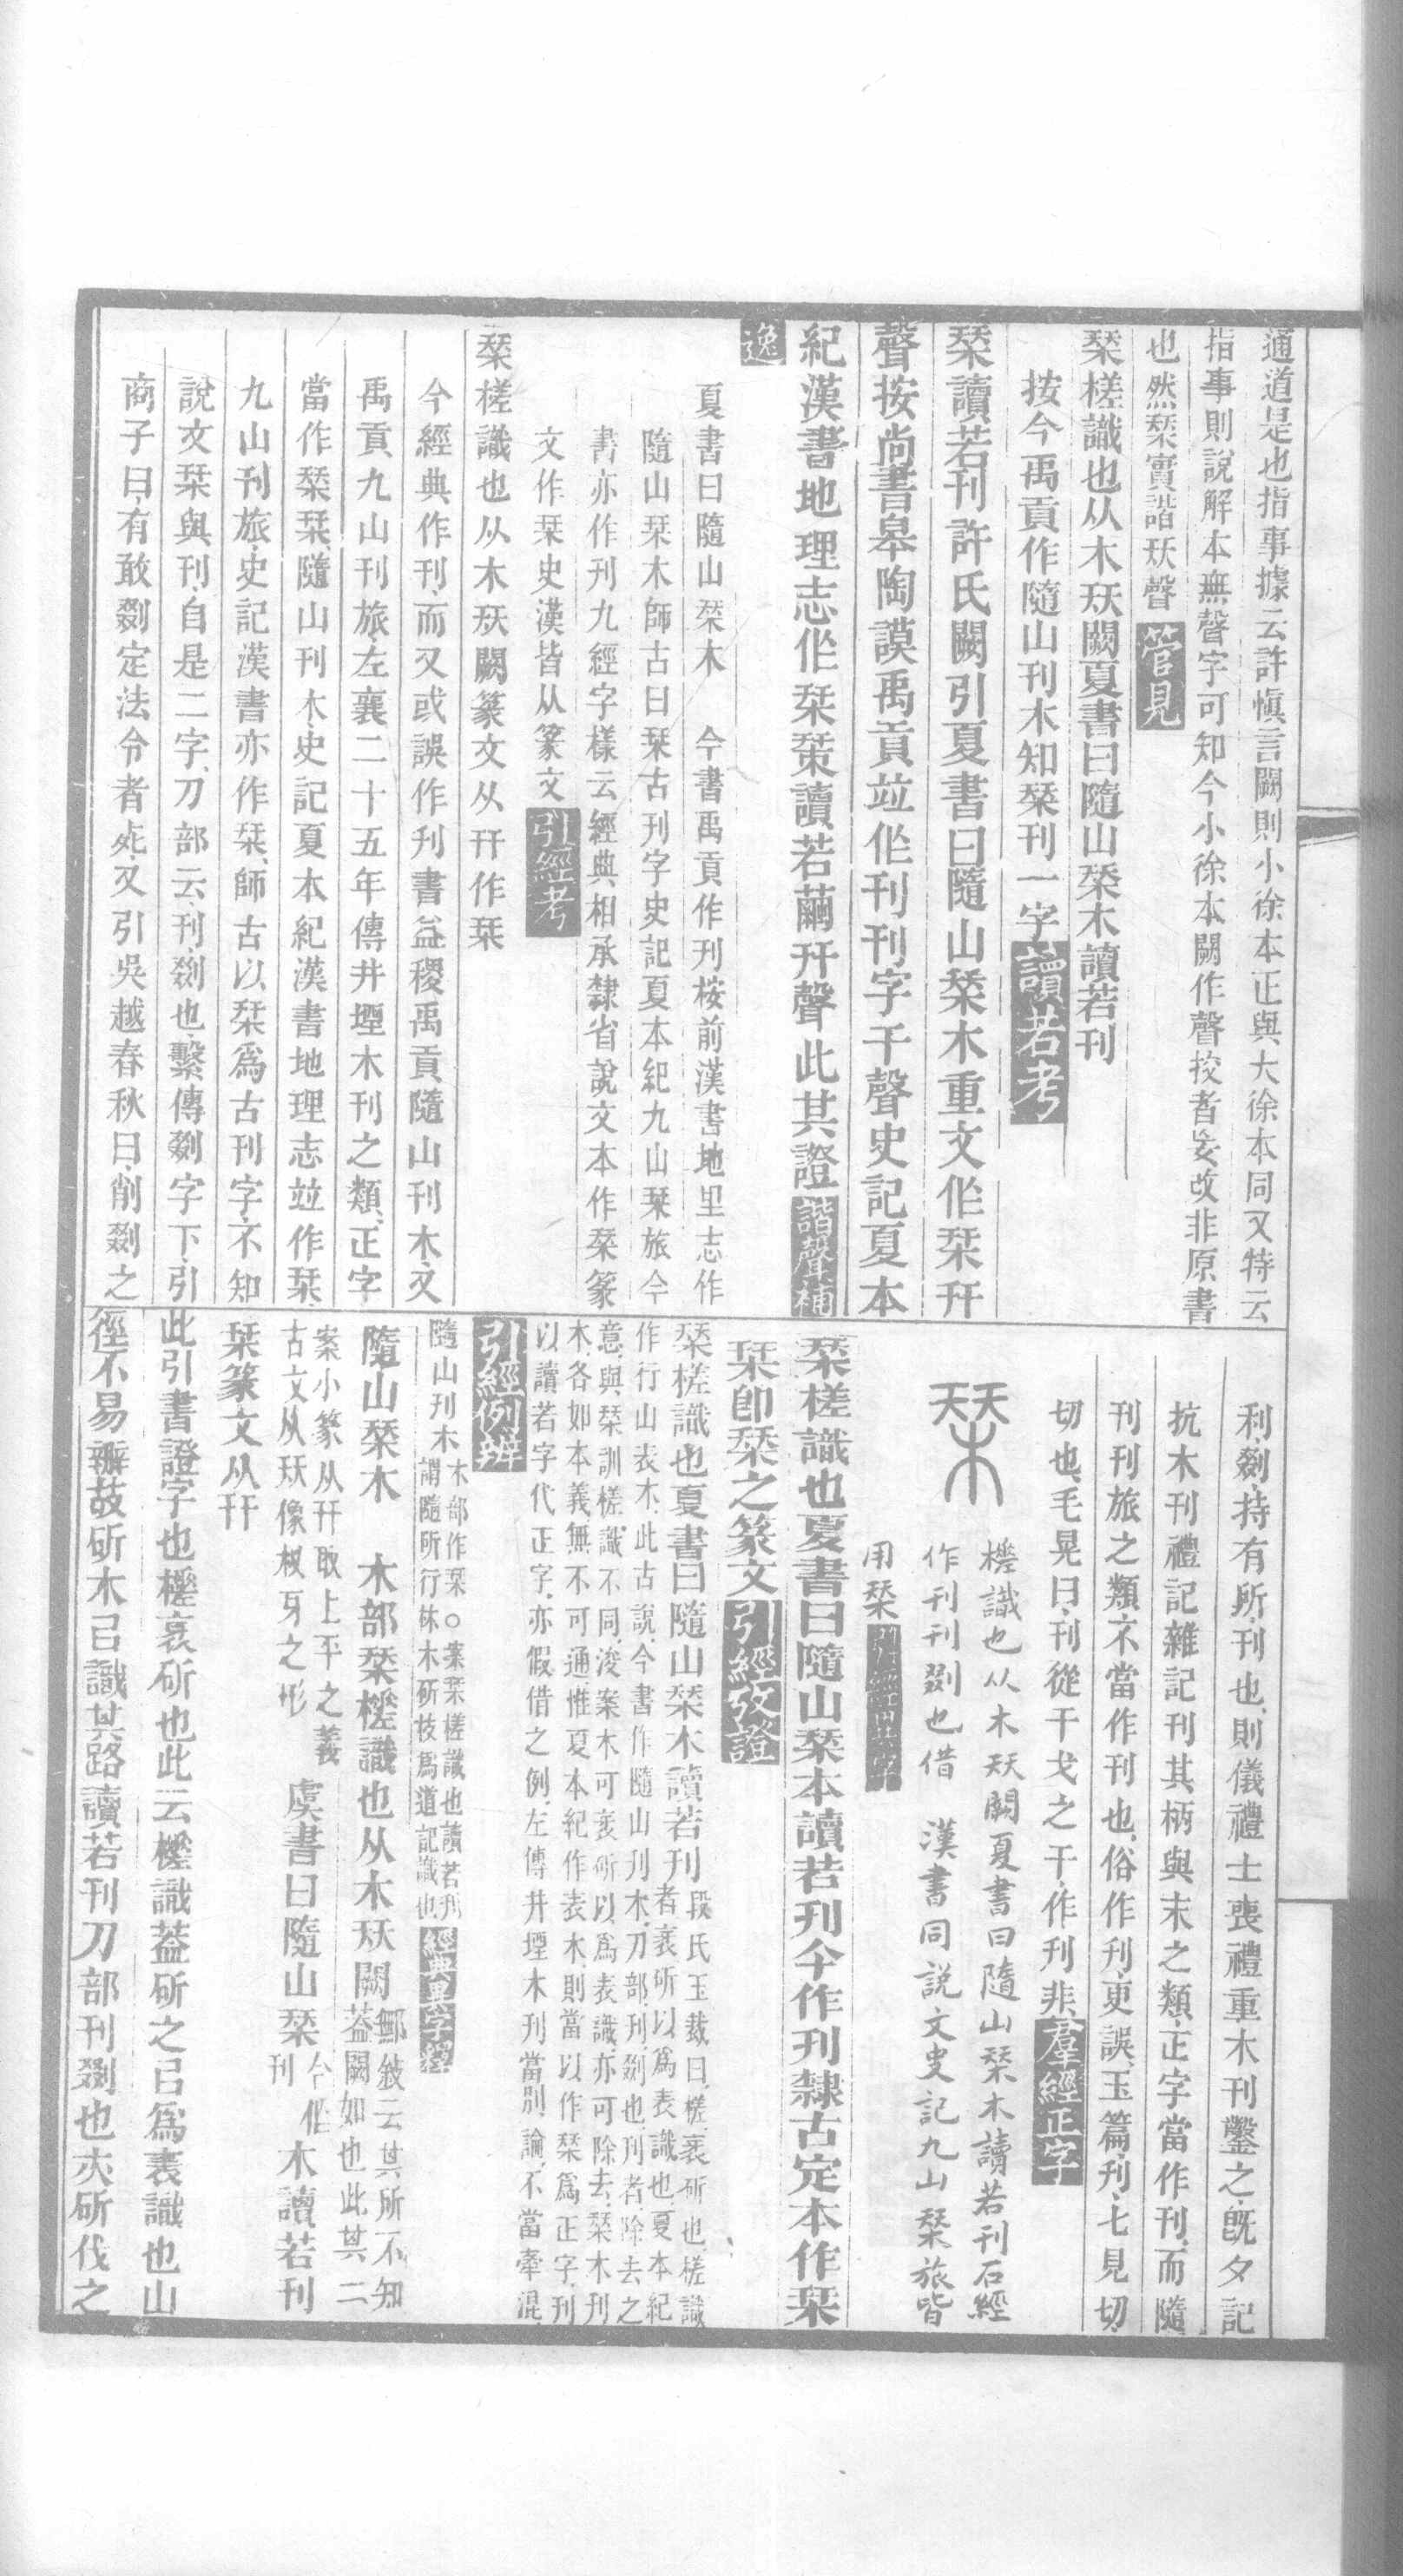 通道是也指事據云許愼言闕則小徐本正與大徐本同又特云
指事則說解本無聲字可知今小徐本闕作聲挍者妄改非原書
也然𣓁實諧㺵聲管見
𣓁槎識也从木㺵闕夏書曰隨山𣓁木讀若刊
按今禹貢作隨山刊木知𣓁刊一字讀若考
𣓁讀若刊許氏闕引夏書曰隨山𣓁木重文作栞幵
聲按尚書皋陶謨禹貢竝作刊刊字干聲史記夏本
紀漢書地理志作栞䇞讀若繭幵聲此其證諧聲補
逸
夏書曰隨山𣓁木 今書禹貢作刊桉前漢書地里志作
隨山栞木師古曰栞古刊字史記夏本紀九山栞旅今
書亦作刊九經字樣云經典相承隸省說文本作𣓁篆
文作栞史漢皆从篆文引經考
𣓁槎識也从木㺵闕篆文从幵作栞
今經典作刊而又或誤作刋書益稷禹貢隨山刊木又
禹貢九山刊旅左襄二十五年傳井堙木刊之類正字
當作𣓁栞隨山刊木史記夏本紀漢書地理志竝作栞
九山刊旅史記漢書亦作栞師古以栞爲古刊字不知
說文栞與刊自是二字刀部云刊剟也繫傳剟字下引
商子曰有敢剟定法令者死又引吳越春秋曰削剟之
利剟持有所刊也則儀禮士喪禮重木刊鑿之旣夕記
抗木刊禮記雜記刊其柄與末之類正字當作刊而隨
刊刊旅之類不當作刊也俗作刋更誤玉篇刋七見切
切也毛晃曰刊從干戈之干作刋非羣經正字
𣓁
槎識也从木㺵闕夏書曰隨山𣓁木讀若刊石經
作刊刊剟也借 漢書同說文史記九山栞旅皆
用栞
𣓁槎識也夏書曰隨山𣓁木讀若刊今作刊隸古定本作栞
栞卽𣓁之篆文引經攷證
𣓁槎識也夏書曰隨山𣓁木讀若刊段氏玉裁曰槎衺斫也槎識
者衺斫以爲表識也夏本紀
作行山表木此古說今書作隨山刊木刀部刊剟也刊者除去之
意與𣓁訓槎識不同浚案木可衺斫以爲表識亦可除去𣓁木刊
木各如本義無不可通惟夏本紀作表木則當以作𣓁爲正字刊
以讀若字代正字亦假借之例左傳井堙木刊當別論不當牽混
引經例辨
隨山刊木木部作𣓁○案𣓁槎識也讀若刊
謂隨所行林木斫枝爲道記識也
隨山𣓁木 木部𣓁槎識也从木㺵闕鄦敍云其所不知
葢闕如也此其二
案小篆从幵取上平之義
古文从㺵像杈牙之形虞書曰隨山𣓁今作
刊木讀若刊
栞篆文从幵
此引書證字也槎衺斫也此云槎識葢斫之以爲表識也山
徑不易辨故斫木以識其路讀若刊刀部刊剟也夾斫伐之